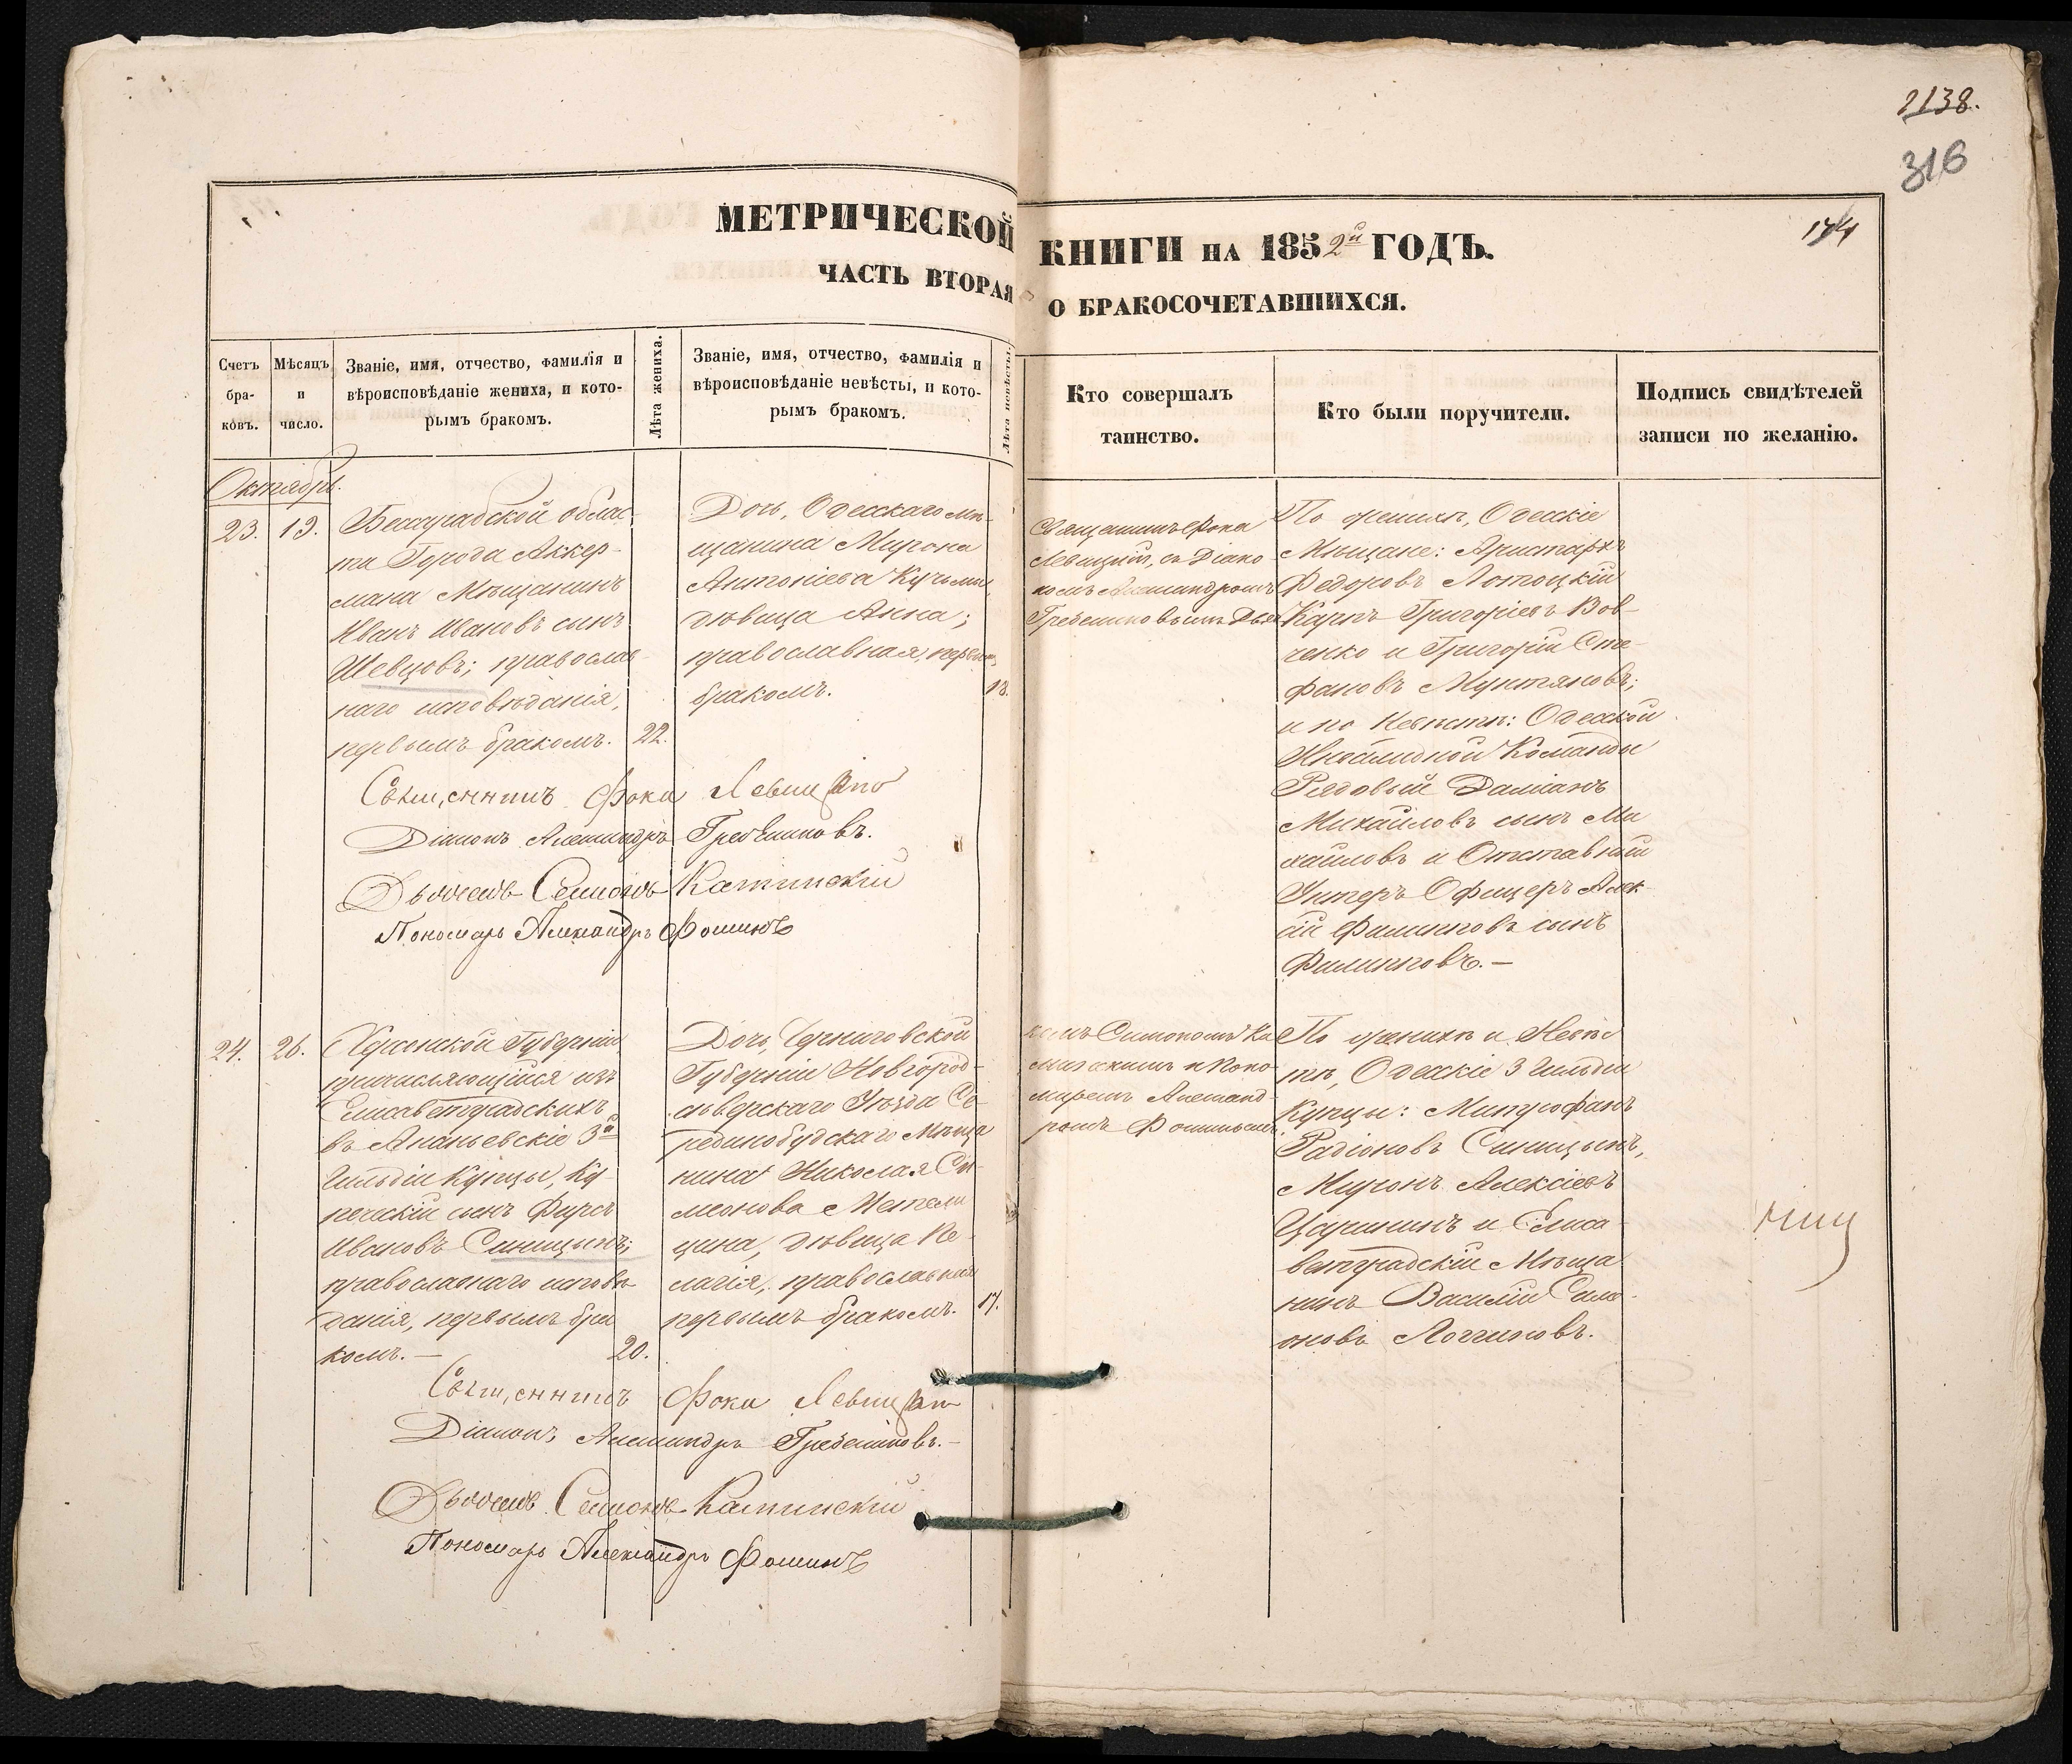 2138.
316
174
МЕТРИЧЕСКОЙ КНИГИ НА 1852й ГОДЪ.
ЧАСТЬ ВТОРАЯ О БРАКОСОЧЕТАВШИХСЯ.
Счетъ
бра-
ковъ.
Мѣсяцъ
и
число.
Званіе, имя, отчество, фамилія и
вѣроисповѣданіе жениха, и кото-
рымъ бракомъ.
Лѣта жениха.
Званіе, имя, отчество, фамилія и
вѣроисповѣданіе невѣсты, и кото-
рымъ бракомъ.
Лѣта невѣсты.
Кто совершалъ
таинство.
Кто были поручители.
Подпись свидѣтелей
записи по желанію.
Октябрь.
23.
19.
Бессарабской облас-
ти Города Аккер-
мана Мѣщанинъ
Иванъ Ивановъ сынъ
Шевцовъ; православ-
наго исповѣданія,
первымъ бракомъ.
22.
Дочь, Одесскаго мѣ-
щанина Мирона
Антоніева
дѣвица Анна;
православная, первымъ
бракомъ.
18.
Священникъ Фока
Левицкій, съ Діако-
номъ Александромъ
Гребенниковымъ Дьяч-
По женихѣ, Одесскіе
Мѣщане: Аристархъ
Федоровъ Лотоцкій
Карпъ Григоріевъ Вов-
ченко и Григорій Сте-
фановъ Мунтяновъ;
и по Невѣстѣ: Одесской
Инвалидной Команды
Рядовый Даміанъ
Михайловъ сынъ Ми
хайловъ и Отставный
Унтеръ Офицеръ Алек-
сій Филипповъ сынъ
Филипповъ.—
Священникъ Фока Левицкій
Діаконъ Александръ Гребенниковъ.
Дьячекъ Симеонъ Каминскій
Пономарь Александръ Фоминъ
24.
26.
Херсонской Губерніи,
причисляющійся изъ
Елисаветградскихъ
въ Ананьевскіе 3й
Гильдіи Купцы, Ку-
печескій сынъ Фирсъ
Ивановъ Синицынъ;
православнаго исповѣ-
данія, первымъ бра
комъ.—
20.
Дочь, Черниговской
Губерніи Новгород-
сѣверскаго Уѣзда Се-
рединобудскаго Мѣща
нина Николая Си-
меонова
дѣвица Пе-
лагія, православная
первымъ бракомъ.
17.
комъ Симеономъ Ка
минскимъ и Поно-
маремъ Александ-
ромъ Фоминымъ
По женихѣ и Невѣс
тѣ, Одесскіе 3 Гильдіи
Купцы: Митрофанъ
Радіоновъ Синицынъ,
Миронъ Алексіевъ
Царининъ и Елиса-
ветградскій Мѣща
нинъ Василій Симе-
оновъ Логгиновъ.
Священникъ Фока Левицкій
Діаконъ Александръ Гребенниковъ.—
Дьячекъ Симеонъ Каминскій
Пономарь Александръ Фоминъ